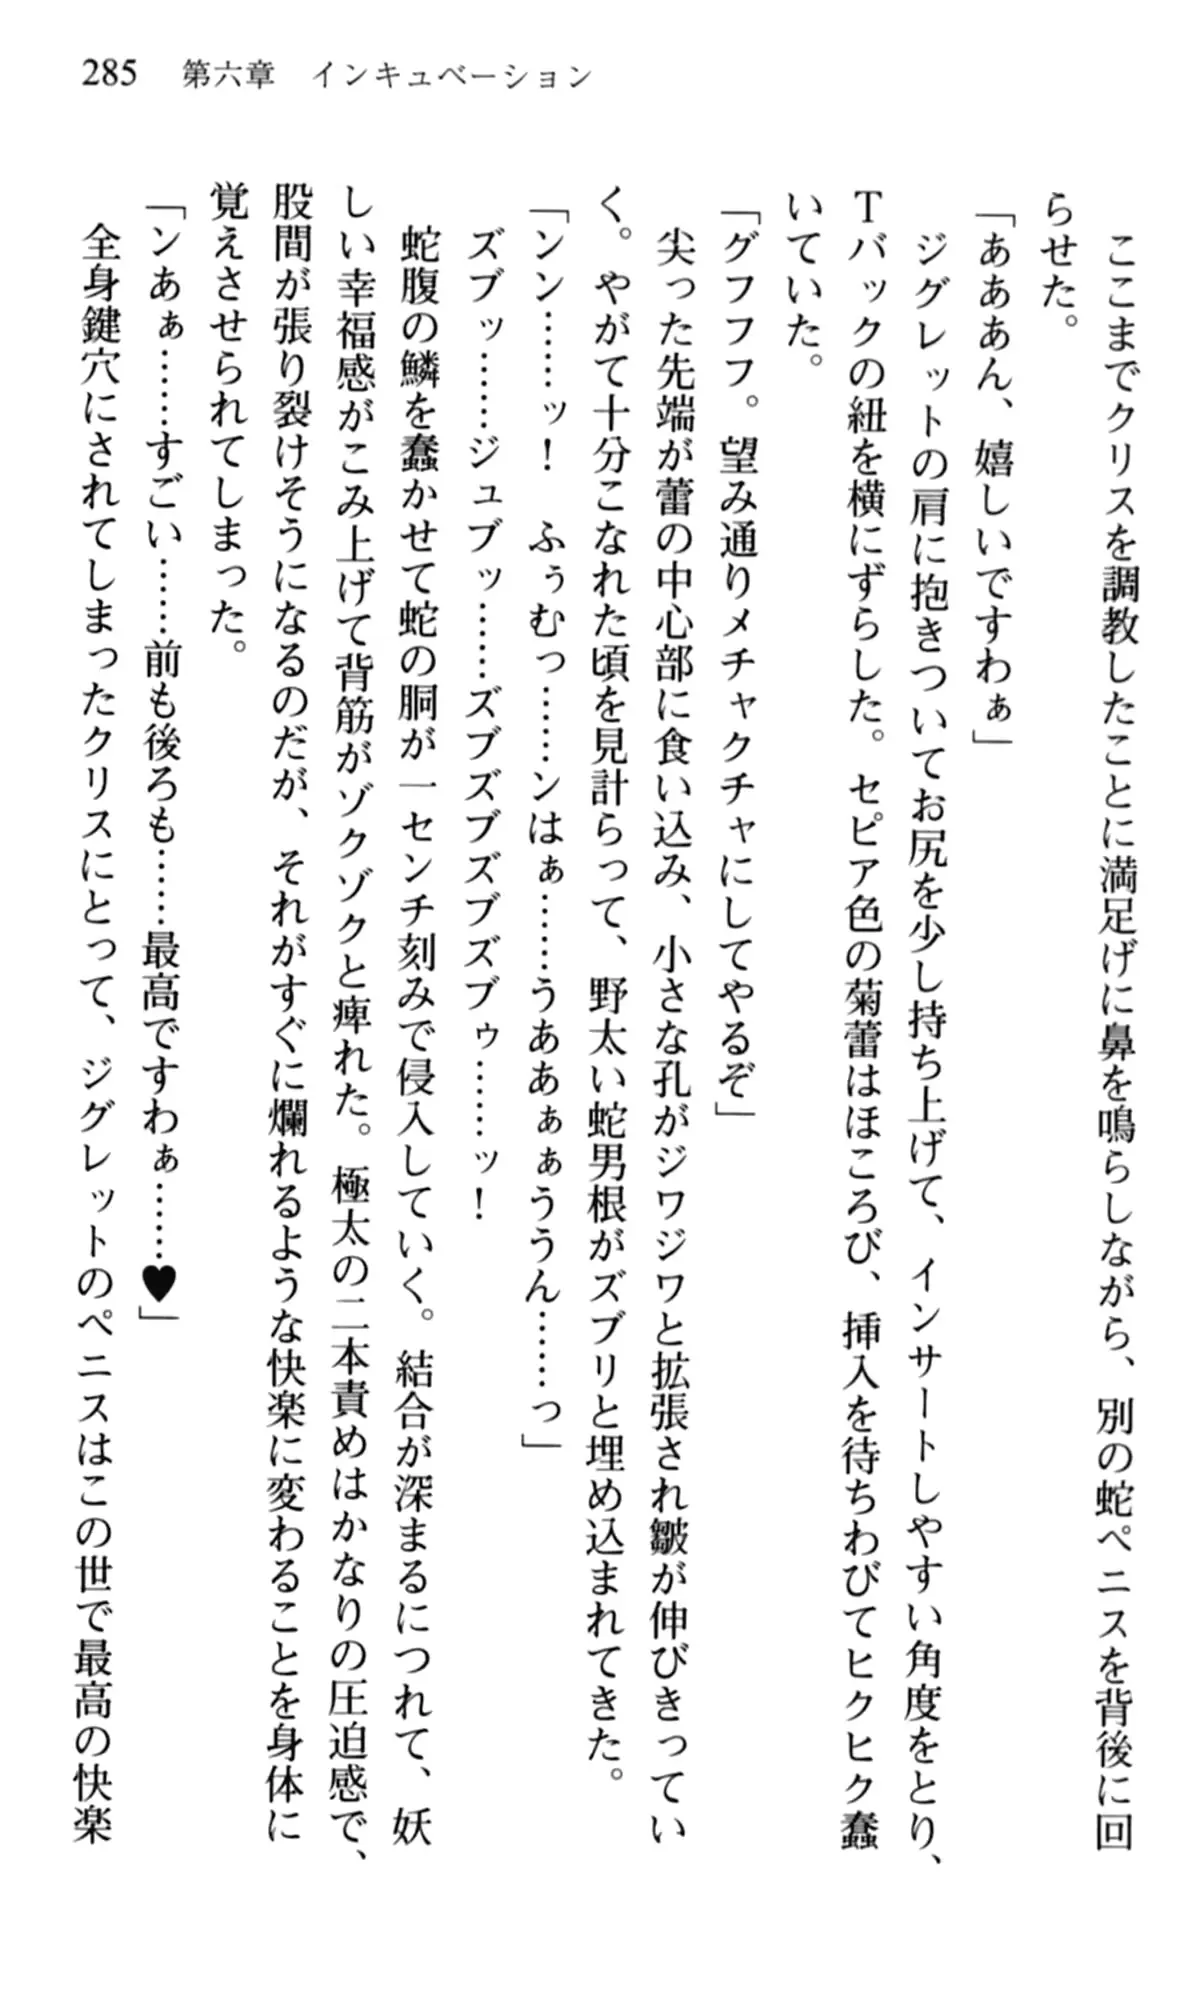 285　第六章　インキュベーション
　ここまでクリスを調教したことに満足げに鼻を鳴らしながら、別の蛇ペニスを背後に回
らせた。
「あああん、嬉しいですわぁ」
　ジグレットの肩に抱きついてお尻を少し持ち上げて、インサートしやすい角度をとり、
Tバックの紐を横にずらした。セピア色の菊蕾はほころび、挿入を待ちわびてヒクヒク蠢
いていた。
「グフフフ。望み通りメチャクチャにしてやるぞ」
　尖った先端が蕾の中心部に食い込み、小さな孔がジワジワと拡張され皺が伸びきってい
く。やがて十分こなれた頃を見計らって、野太い蛇男根がズブリと埋め込まれてきた。
「ンン……ッ！　ふぅむっ……ンはぁ……うああぁぁううん……っ」
　ズブッ……ジュブッ……ズブズブズブズブゥ……ッ！
　蛇腹の鱗を蠢かせて蛇の胴が一センチ刻みで侵入していく。結合が深まるにつれて、妖
しい幸福感がこみ上げて背筋がゾクゾクと痺れた。極太の二本責めはかなりの圧迫感で、
股間が張り裂けそうになるのだが、それがすぐに爛れるような快楽に変わることを身体に
覚えさせられてしまった。
「ンあぁ……すごい……前も後ろも……最高ですわぁ……♥」
　全身鍵穴にされてしまったクリスにとって、ジグレットのペニスはこの世で最高の快楽